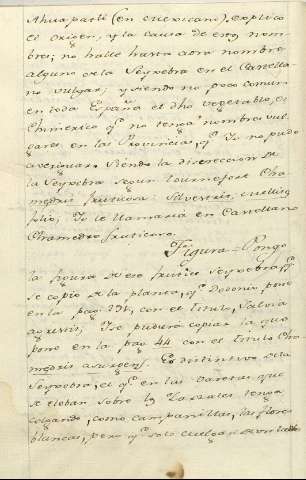 Ahuapatli (en mexicano), explico
el origen, y la causa de estos nombres
bres; no hallé hasta aora nombre
alguno de la Seynebra en el Castella
no vulgar; y siendo no poco comun
en toda España el dho vegetable, es
qe no tenga nombres vul
gares en las Provincias, qe Yo no pude
averiguar. Siendo la
la Seynebra segun Tournefort Cha
medris fruticosa: Silvestris
folio; Yo le llamaria en Castellano
Chamedro fruticoso.
Figura = Pongo
la figura de este frutice Seynebra, qe
se copió de la planta, qe Dodoneo pone
en la pag. 291, con el titulo, Salvia
agrestis, Yse pudiera copiar la que
pone en la pag 44 con el titulo Cha
medris assurgens. Es distintivo de la
Seynebra, el qe en las varetas que
se eleban sobre los Zarzales, tenga
colgando, como campanillas, las flores
blancas, pero qe solo cuelgan de un lado